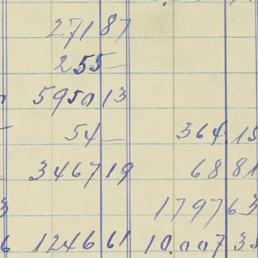 271 87
255 —
5950 13
54 — 364 15
3467 19 68 81
3 1797 63
6 1246 61 10.007 33